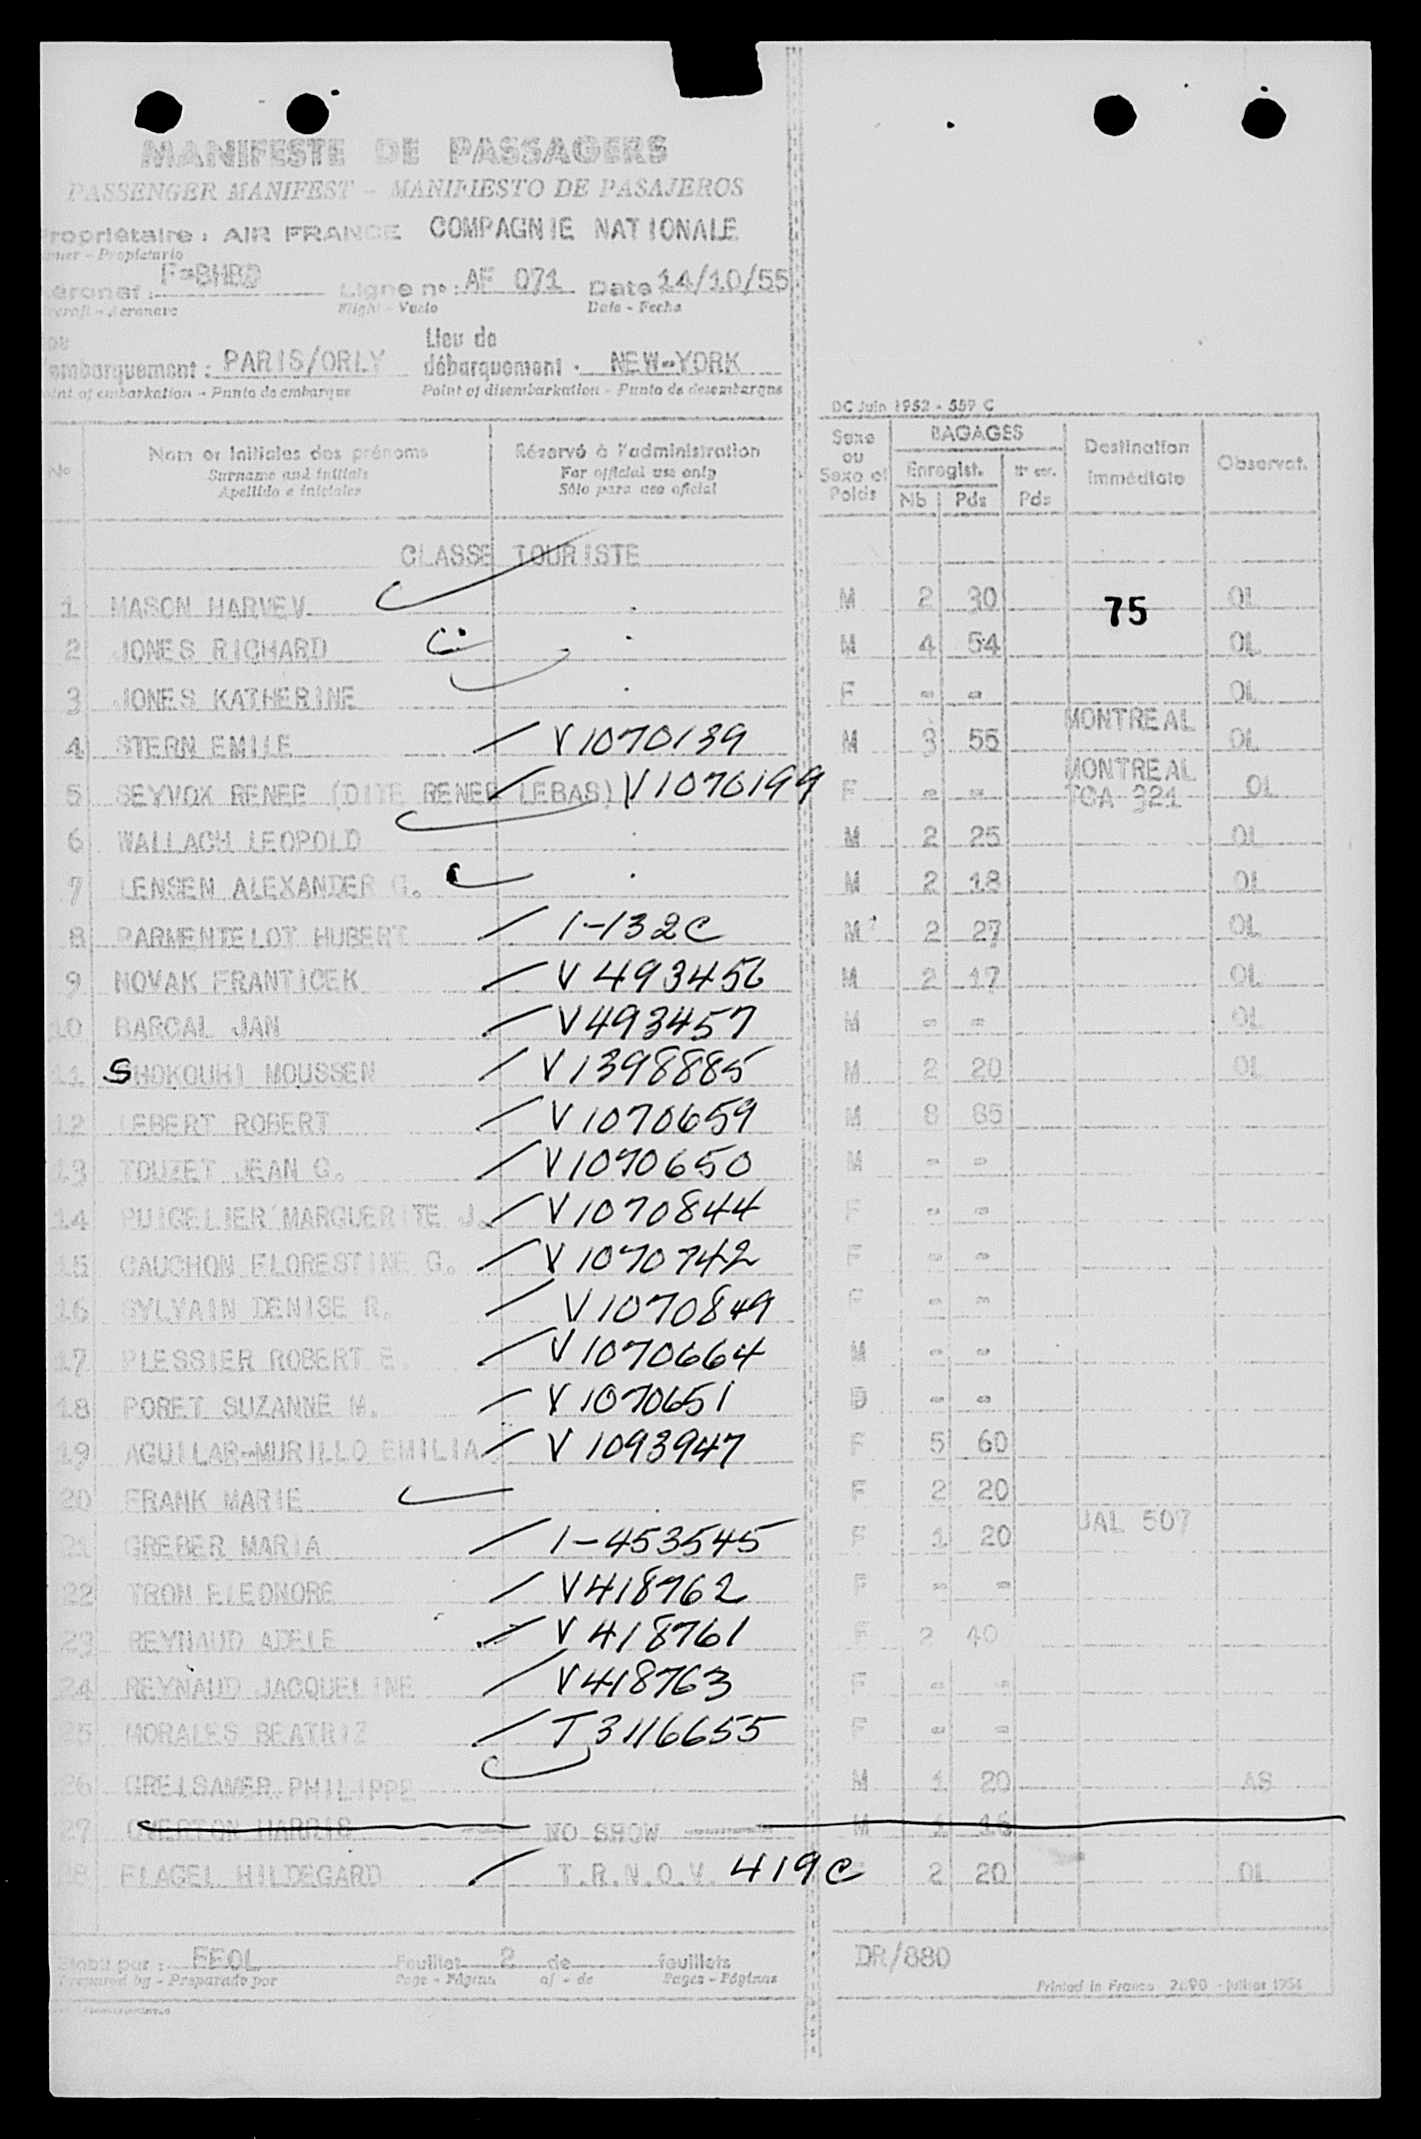 MANIFESTE DE PASSAGERS
PASSENGER MANIFEST - MANIFIESTO DE PASAJEROS
ropriétaire : AIR FRANCE COMPAGNIE NATIONALE
ner - Propietario
éronef : F-BHBD Ligne n° : AF 071 Date 14/10/55
craft - Aeronave Flight - Vuelo Date - Fecha
Lieu de
embarquement : PARIS/ORLY débarquement : NEW-YORK
int of embarkation - Punto de embarque Point of disembarkation - Punto de desembarque
DC Juin 1952 - 559 C
N° Nom et initiales des prénoms Réservé à l'administration Sexe ou Sexe et Poids BAGAGES Destination immédiate Observat.
Surname and initials For official use only Enregist.
Apellido e iniciales Sólo para uso oficial Nb Pds Pds
CLASSE TOURISTE
1 MASON HARVEV. M 2 30 75 OL
2 JONES RICHARD M 4 54 OL
3 JONES KATHERINE F - - OL
4 STERN EMILE V1070139 M 3 55 MONTREAL OL
5 SEYVOX RENEE (DITE RENEE LEBAS) V1070199 F - - MONTREAL TCA 321 OL
6 WALLACH LEOPOLD M 2 25 OL
7 LENSEN ALEXANDER G. M 2 18 OL
8 PARMENTELOT HUBERT 1-132C M 2 27 OL
9 NOVAK FRANTICEK V 493456 M 2 17 OL
10 BARCAL JAN V493457 M - - OL
11 SHOKOUHI MOUSSEN V1398885 M 2 20 OL
12 LEBERT ROBERT V1070659 M 8 85
13 TOUZET JEAN G. V1070650 M - -
14 PUIGELIER MARGUERITE J. V1070844 F - -
15 CAUCHON FLORESTINE G. V1070742 F - -
16 SYLVAIN DENISE R. V1070849 F - -
17 PLESSIER ROBERT E. V1070664 M - -
18 PORET SUZANNE M. V 1070651 - -
19 AGUILAR-MURILLO EMILIA V 1093947 F 5 60
20 FRANK MARIE F 2 20
21 GREBER MARIA 1-453545 F 1 20 UAL 507
22 TRON ELEONORE V418762 F - -
23 REYNAUD ADELE V 418761 F 2 40
24 REYNAUD JACQUELINE V418763 F - -
25 MORALES BEATRIZ T3116655 F - -
26 GREISAMER PHILIPPE M 1 20 AS
27 OVERTON HARRIS NO SHOW M 1 18
28 FLAGEL HILDEGARD T.R.N.O.V. 419C 2 20 OL
Etabli par : FEOL Feuillet 2 de feuillets DR/880
Prepared by - Preparado por Page - Página of - de Pages - Páginas Printed in France 2690 - juillet 1954